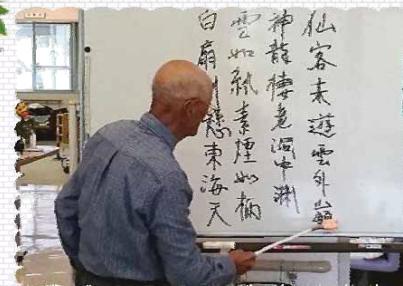 仙客来遊雲外巓
神龍棲老洞中淵
雪如紈素煙如柄
白扇倒懸東海天